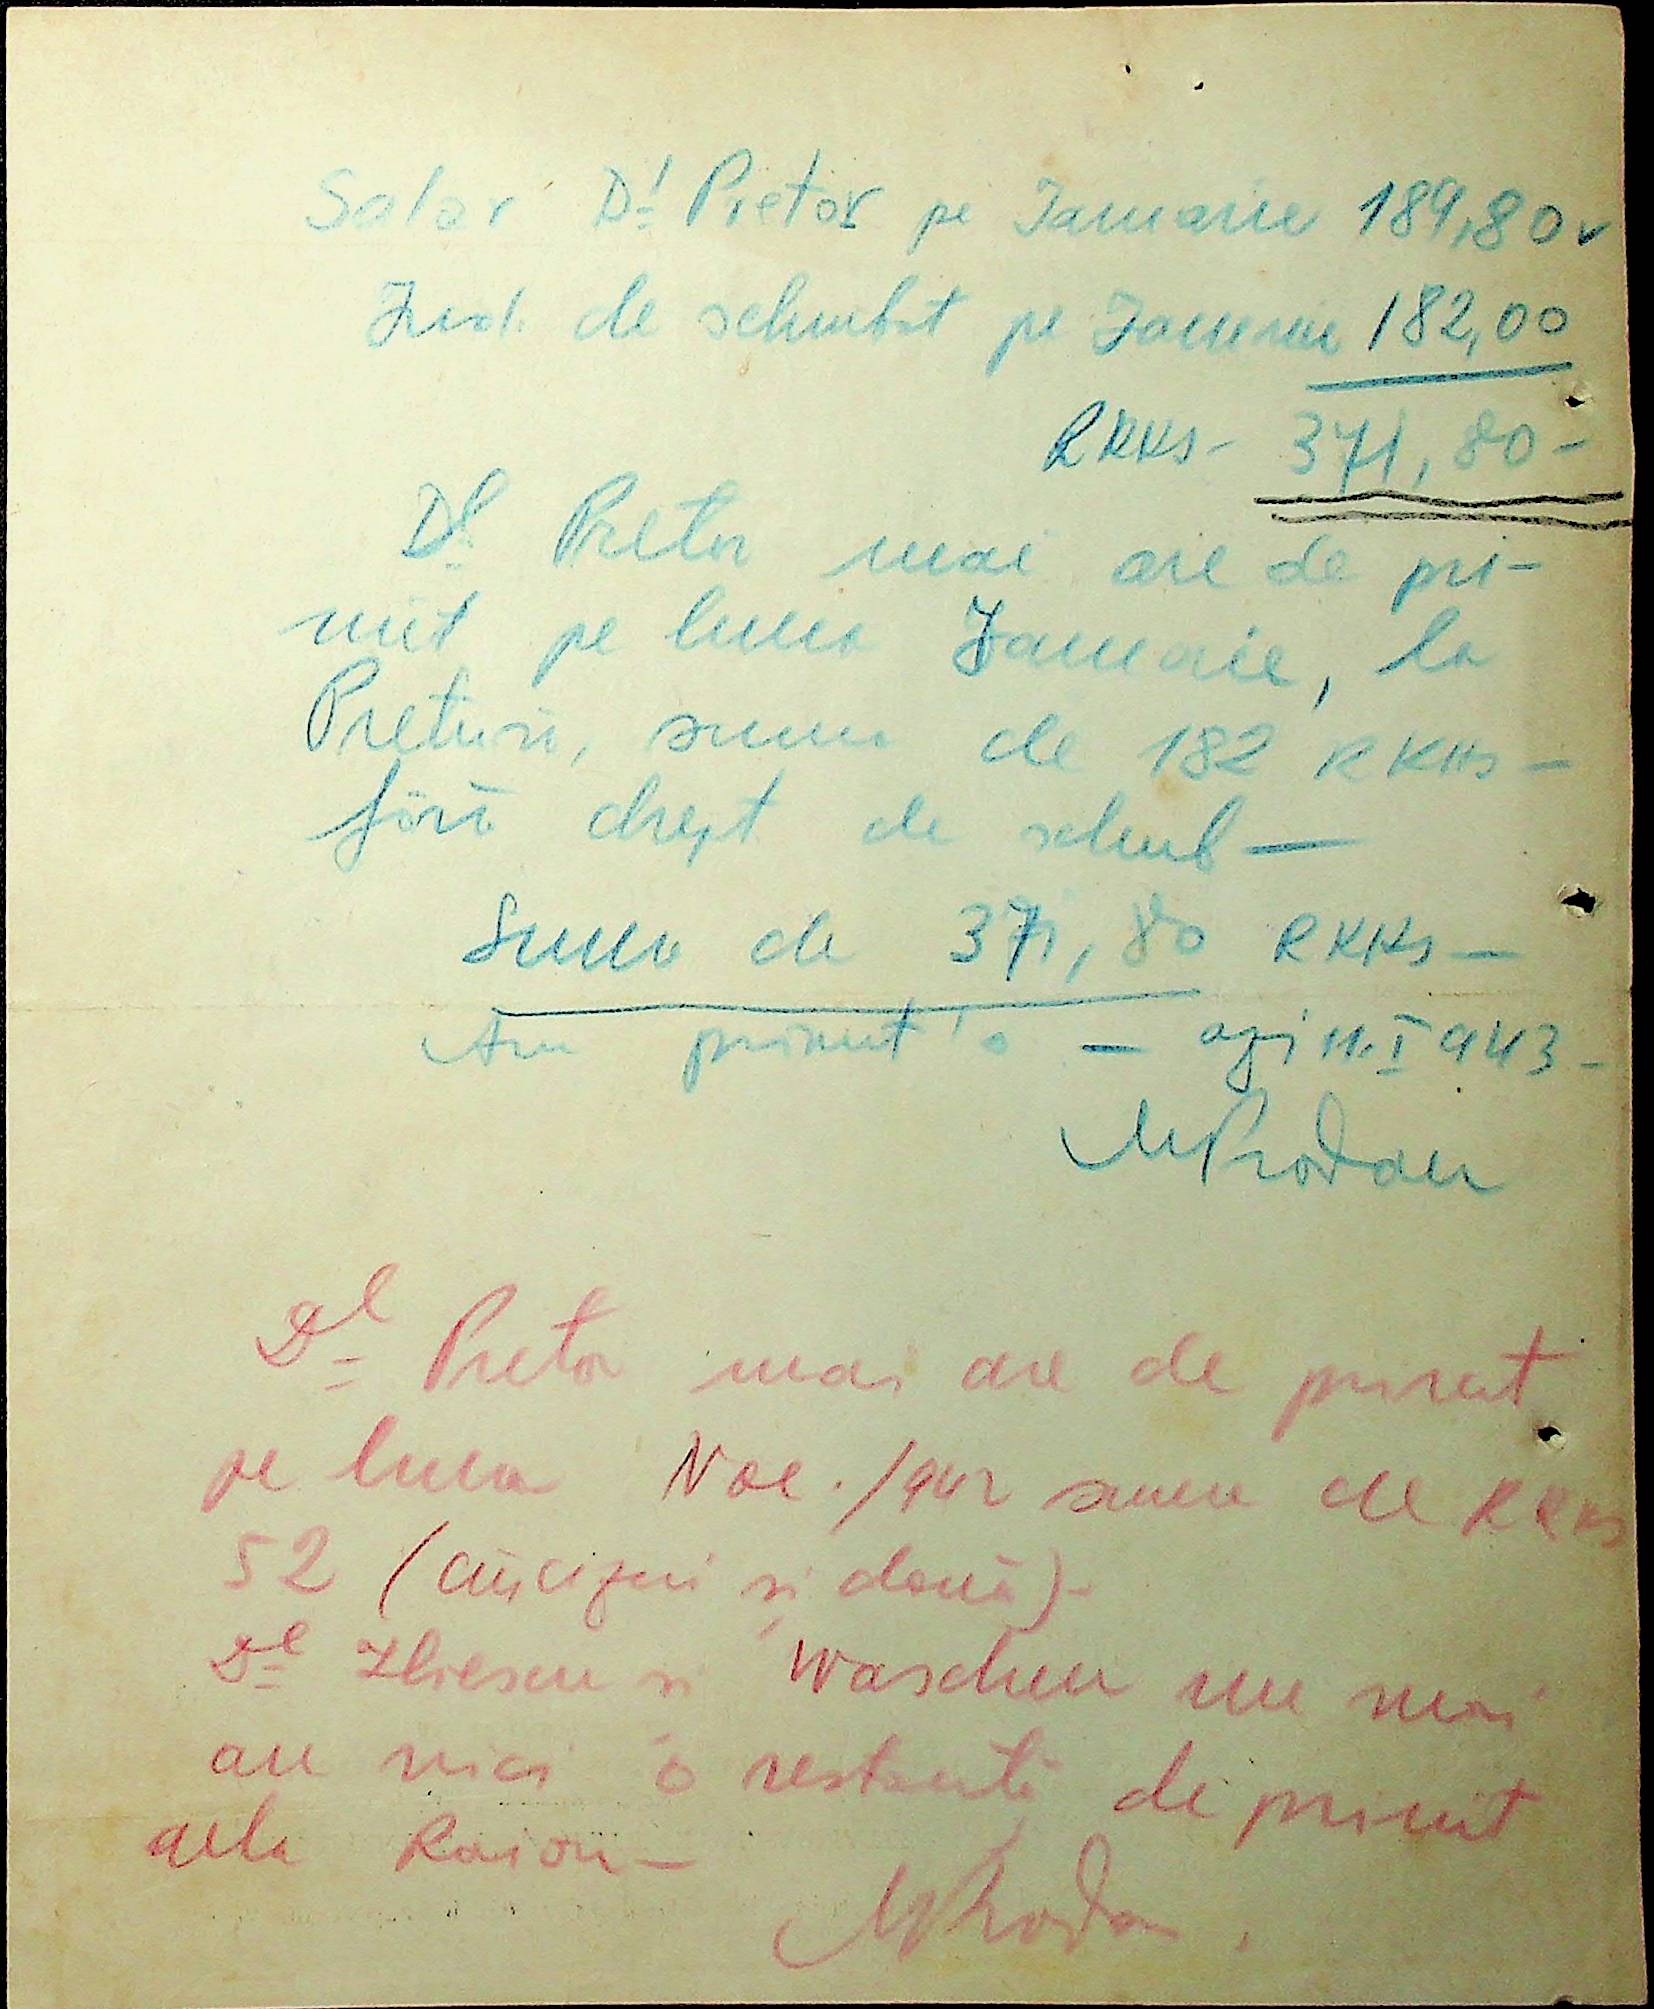 Salar Dl Pretor pe Ianuarie 189,80
Ind. de schimbat pe Ianuarie 182,00
RKKS- 371,80-
Dl Pretor mai are de pri-
mit pe luna Ianuarie, la
Pretură, suma de 182 RKKS-
fără drept de schimb-
Suma de 371,80 RKKS-
Am primit'o - azi 11.I 943-
MProdan
Dl Pretor mai are de primit
pe luna Noe./942 suma de RKKS
52 (cincizeci și două)-
Dl Iliescu și nu mai
au nici o restanță de primit
dela Raion-
MProdan.